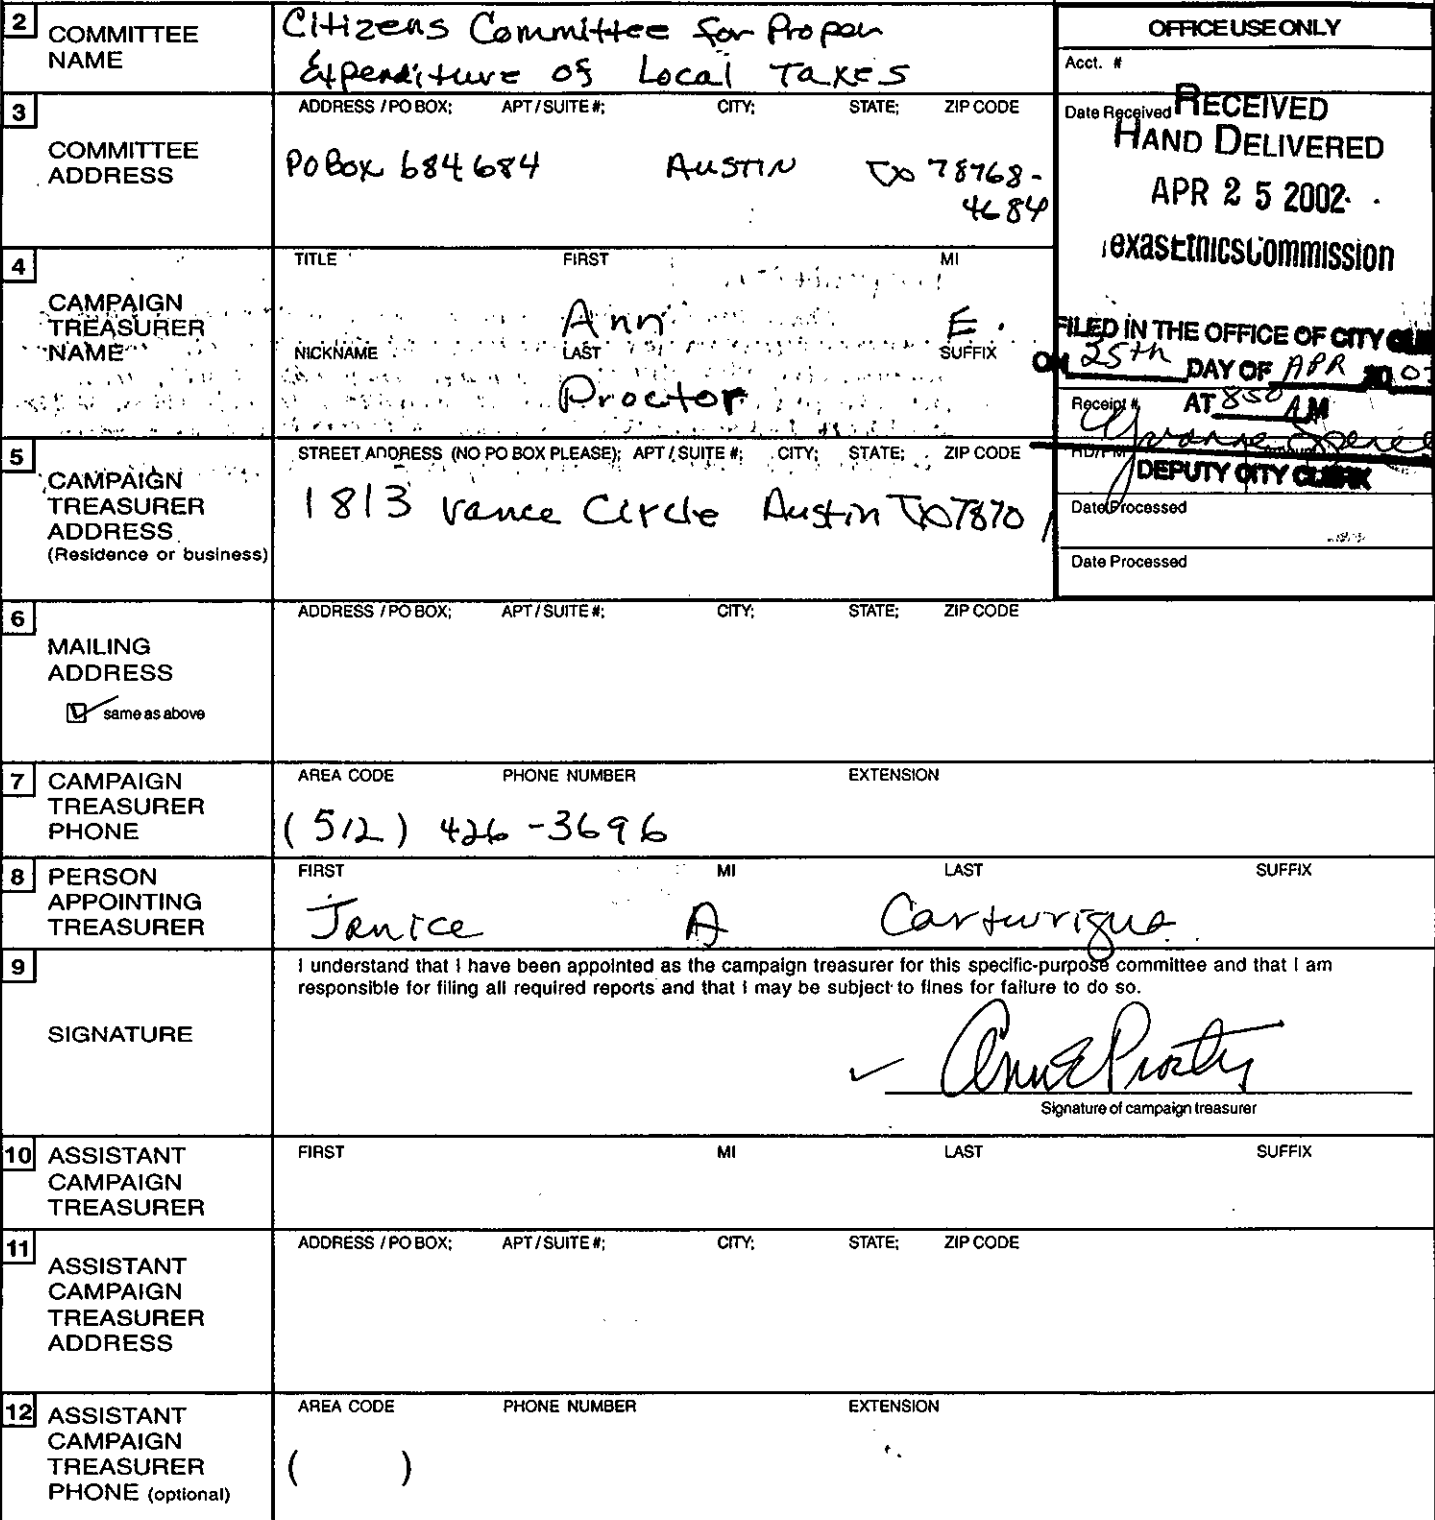 2 COMMITTEE NAME
Citizens Committee for Proper
Expenditure of Local Taxes
OFFICE USE ONLY
Acct. #
Date Received
RECEIVED
HAND DELIVERED
APR 25 2002
Texas Ethics Commission
3 COMMITTEE ADDRESS
ADDRESS / PO BOX; APT / SUITE #; CITY; STATE; ZIP CODE
PO Box 684684 AUSTIN TX 78768-
4684
4 CAMPAIGN TREASURER NAME
TITLE FIRST MI
Ann E.
NICKNAME LAST SUFFIX
Proctor
FILED IN THE OFFICE OF CITY CLERK
ON 25th DAY OF APR
Receipt #
AT 850 AM
HD/PM
DEPUTY CITY CLERK
Date Processed
Date Processed
5 CAMPAIGN TREASURER ADDRESS
(Residence or business)
STREET ADDRESS (NO PO BOX PLEASE); APT / SUITE #; CITY; STATE; ZIP CODE
1813 Vance Circle Austin TX 78701
6 MAILING ADDRESS
same as above
ADDRESS / PO BOX; APT / SUITE #; CITY; STATE; ZIP CODE
7 CAMPAIGN TREASURER PHONE
AREA CODE PHONE NUMBER EXTENSION
(512) 426-3696
8 PERSON APPOINTING TREASURER
FIRST MI LAST SUFFIX
Janice A
9 SIGNATURE
I understand that I have been appointed as the campaign treasurer for this specific-purpose committee and that I am
responsible for filing all required reports and that I may be subject to fines for failure to do so.
Ann E Proctor
Signature of campaign treasurer
10 ASSISTANT CAMPAIGN TREASURER
FIRST MI LAST SUFFIX
11 ASSISTANT CAMPAIGN TREASURER ADDRESS
ADDRESS / PO BOX; APT / SUITE #; CITY; STATE; ZIP CODE
12 ASSISTANT CAMPAIGN TREASURER PHONE (optional)
AREA CODE PHONE NUMBER EXTENSION
( )